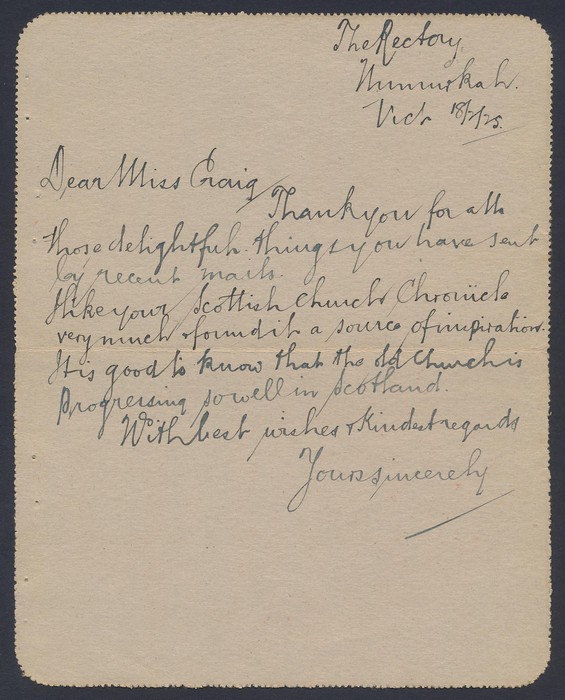 The Rectory,
Numurkah.
Vict 18/2/25.
Dear Miss Craig
Thankyou for all
those delightful things you have sent
by recent mails.
I like your Scottish Church Chronicle
very much & found it a source of inspiration.
It is good to know that the old Church is
progressing so well in Scotland.
With best wishes & Kindest regards
Yours sincerely